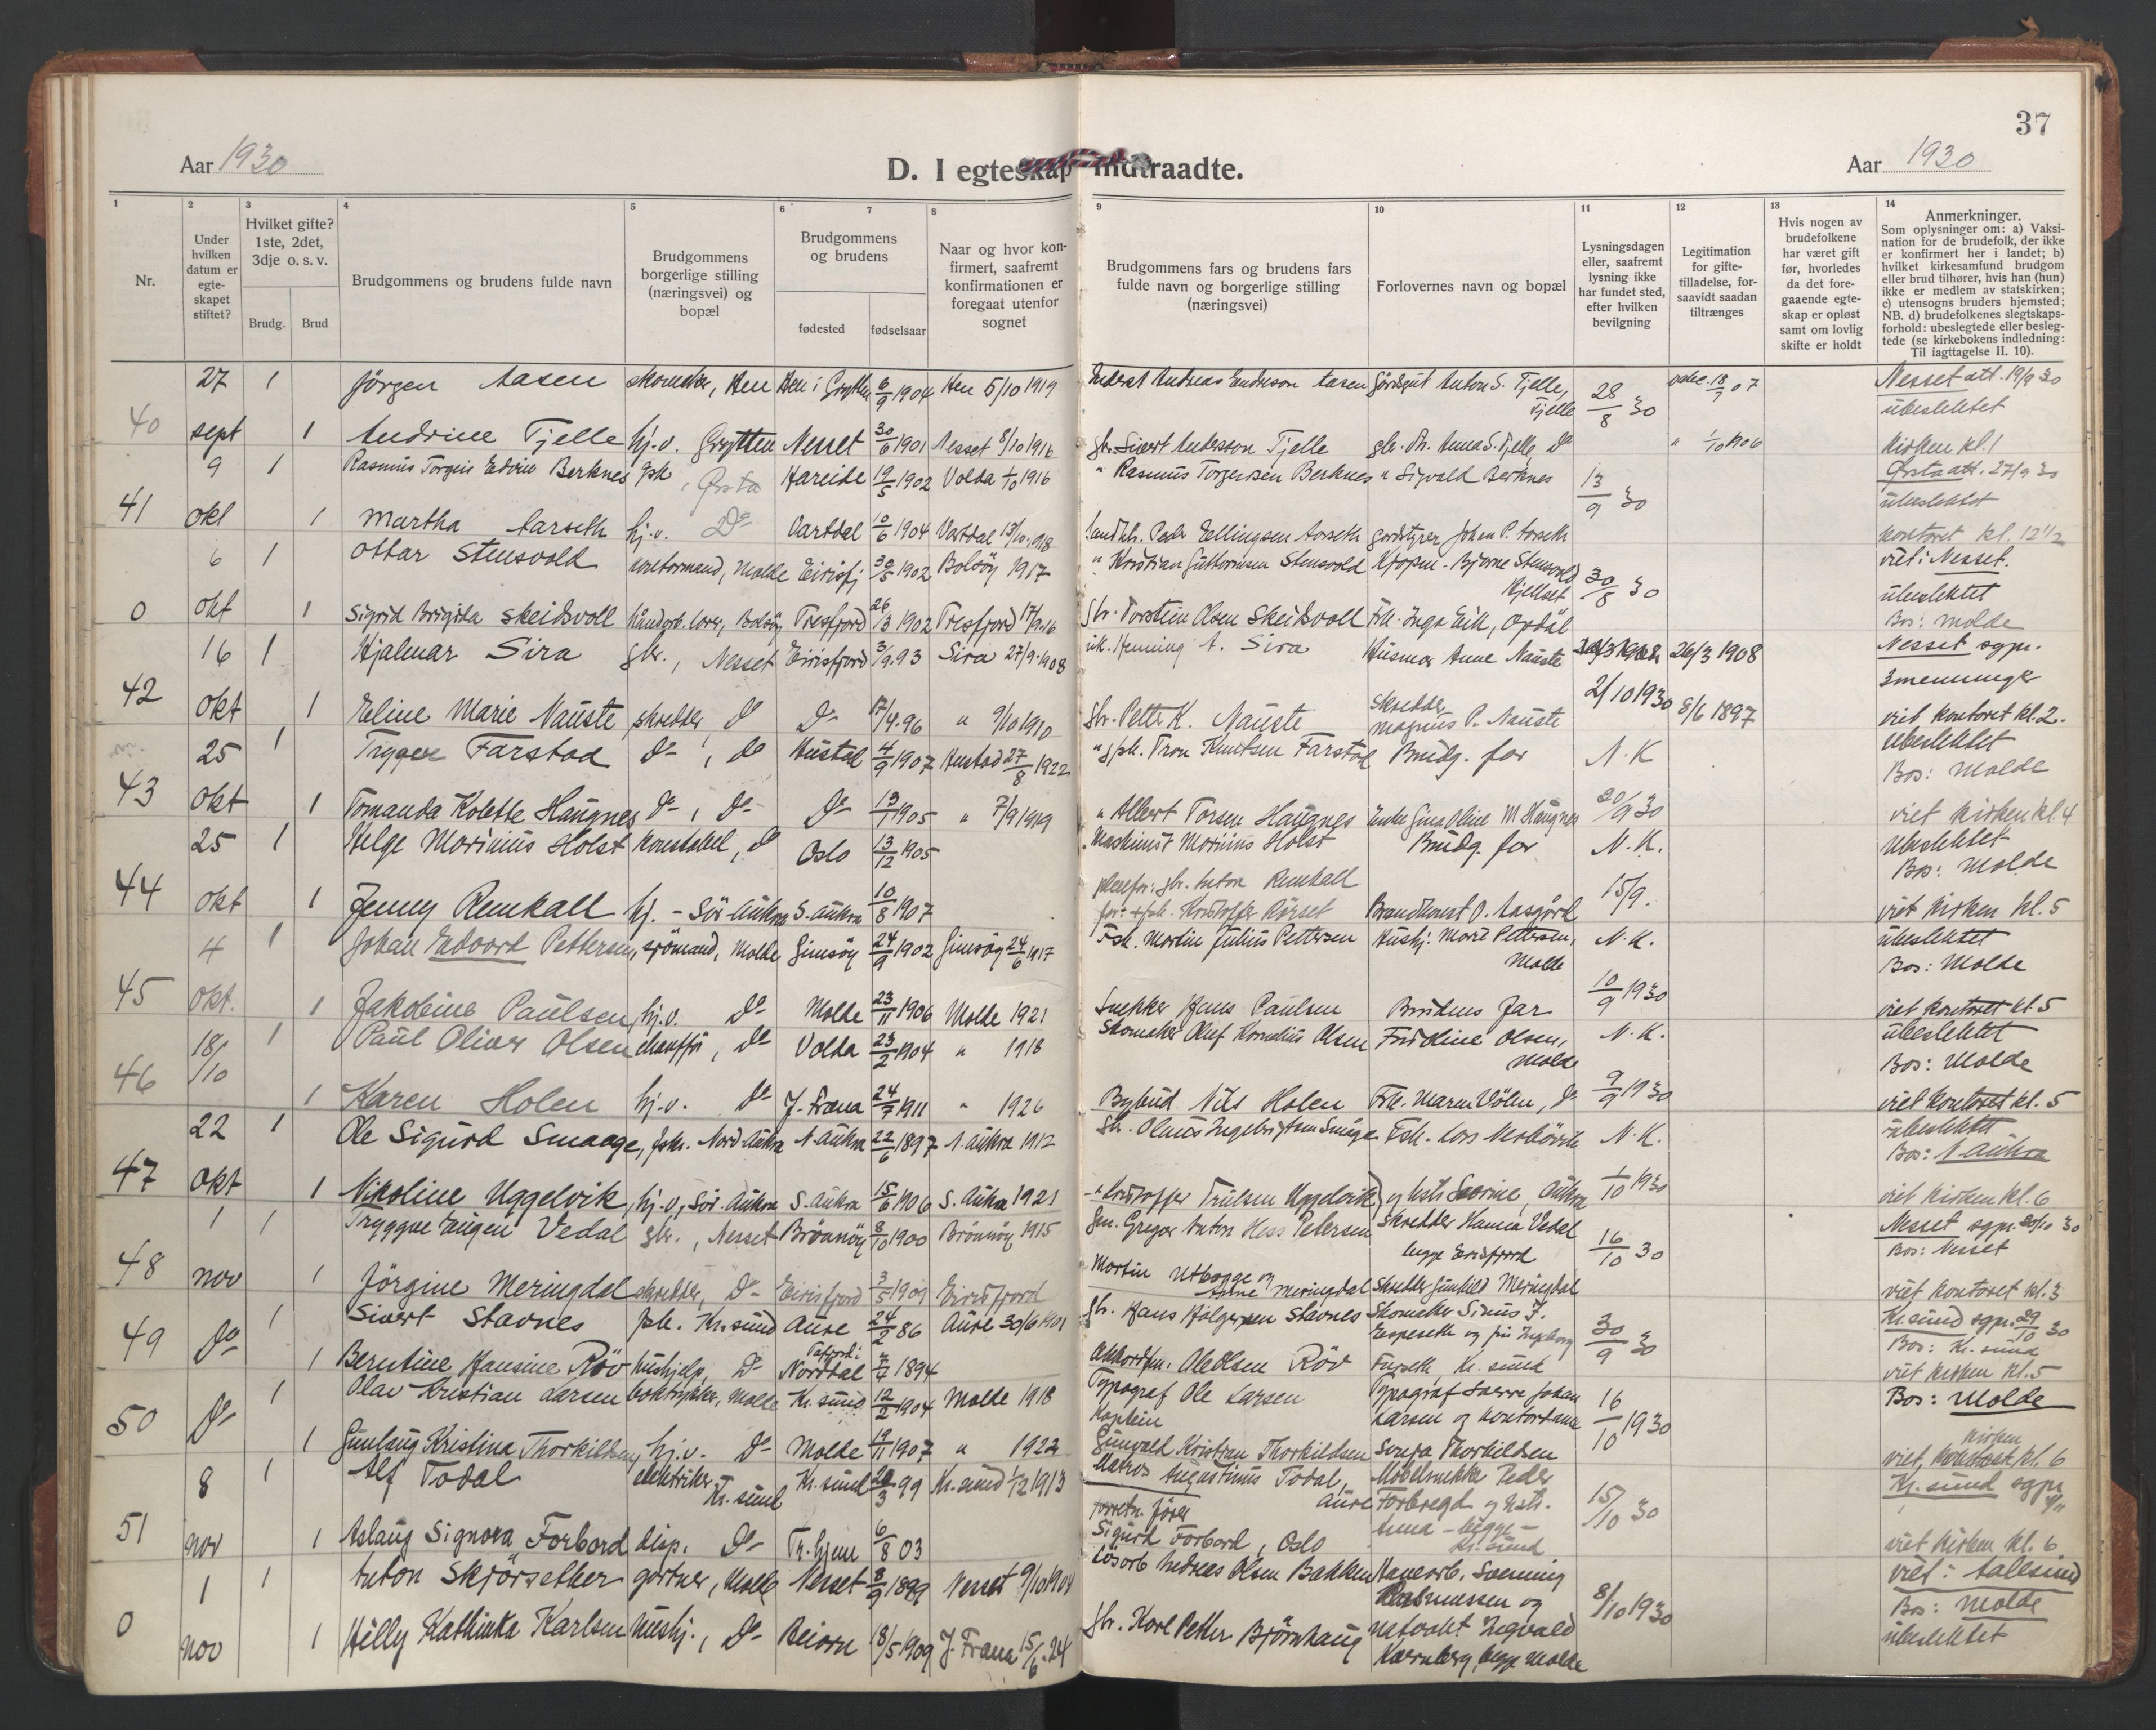 37
Aar 1930
D. I egteskap indtraadte.
Aar 1930
1
Nr.
2
Under hvilken datum er egte-skapet stiftet?
3
Hvilket gifte? 1ste, 2det, 3dje o. s. v.
Brudg. Brud
4
Brudgommens og brudens fulde navn
5
Brudgommens borgerlige stilling (næringsvei) og bopæl
6 7
Brudgommens og brudens
fødested fødselsaar
8
Naar og hvor kon-firmert, saafremt konfirmationen er foregaat utenfor sognet
9
Brudgommens fars og brudens fars fulde navn og borgerlige stilling (næringsvei)
10
Forlovernes navn og bopæl
11
Lysningsdagen eller, saafremt lysning ikke har fundet sted, efter hvilken bevilgning
12
Legitimation for gifte-tilladelse, for-saavidt saadan tiltrænges
13
Hvis nogen av brudefolkene har været gift før, hvorledes da det fore-gaaende egte-skap er opløst samt om lovlig skifte er holdt
14
Anmerkninger.
Som oplysninger om: a) Vaksi-nation for de brudefolk, der ikke er konfirmert her i landet; b) hvilket kirkesamfund brudgom eller brud tilhører, hvis han (hun) ikke er medlem av statskirken; c) utensogns bruders hjemsted; NB. d) brudefolkenes slegtskaps-forhold: ubeslegtede eller besleg-tede (se kirkebokens indledning: Til iagttagelse II. 10).
27 1 Jörgen Aasen skomaker, Hen Hen i Grytten 6/9 1904 Hen 5/10 1919 Anton S. Tjelle, Tjelle 28/8 30 18/9 07 Nesset att. 19/9 30
ubeslektet
40 sept 1 Andrine Tjelle hj.v. Grytten Nesset 30/6 1901 Nesset 8/10 1916 gbr. Sivert Andersson Tjelle Anna S. Tjelle, Do Kirken kl. 1
9 1 Rasmus Torgeir Edvin Berknes gbr., Ørsta Hareide 19/5 1902 Volda 1/10 1916 " Rasmus Torgersen Berknes " Sigvald Berknes 13/9 30 Ørsta att. 27/9 30
ubeslektet
41 okt 1 Martha Aarseth hj.v. Do Vartdal 10/6 1904 Vartdal 13/10 1918 Peder Ellingsen Aarseth Johan P. Aarseth kontoret kl. 12 1/2
6 1 Ottar Stensvold Molde Eirisfj 30/5 1902 Bolsöy 1917 " Kristian Guttormsen Stensvold Kjöpm. Bjarne Stensvold Hjelset 30/8 30 viet i Nesset.
ubeslektet
0 okt 1 Sigrid Brigitta Skeidsvoll Bolsöy Tresfjord 26/3 1902 Tresfjord 17/9 16 gbr. Torstein Olsen Skeidsvoll Frk. Inga Eik, Opdöl Bos: Molde
16 1 Hjalmar Sira gbr., Nesset Eirisfjord 3/9.93 Sira 27/9.1908 Henning A. Sira Husmor Anne Nauste 26/3 1908 Nesset sgpr.
3menninge
42 okt 1 Eline Marie Nauste skredder, Do Do 17/4.96 " 9/10 1910 gbr. Petter K. Nauste Skredder Magnus P. Nauste 2/10 1930 8/6 1897 viet kontoret kl. 2.
25 1 Tryggve Farstad Do, Do Hustad 4/9 1907 Hustad 27/8 1922 " Tron Knutsen Farstad Brudg. far N.K ubeslektet
Bos: Molde
43 okt 1 Tomanda Kolette Haugnes Do, Do Do 13/1 1905 " 7/9 1919 " Albert Torsen Haugnes Enke Gina Oline M Haugnes 20/9 30 viet kirken kl. 4
25 1 Helge Marinius Holst konstabel, Do Oslo 13/12 1905 Maskinist Marinius Holst Brudg. far N.K. ubeslektet
Bos: Molde
44 okt 1 Jenny Remkall hj. Sör-Aukra S. Aukra 10/8 1907 plenefor: gbr. Anton Remkall
Brandkonst O. Aasgård 15/9. viet kirken kl. 5
4 1 Johan Edvard Pettersen, sjömand, Molde Gimsöy 24/9 1902 Gimsöy 24/6 1917 Fsk. Martin Julius Pettersen Hushj. Marie Pettersen, Molde N.K. ubeslektet
Bos: Molde
45 okt. 1 Jakobine Paulsen, hj.v. Do Molde 23/11 1906 Molde 1921 Snekker Hans Paulsen Brudens far 10/9 1930 viet kontoret kl. 5
18/10 1 Paul Oliver Olsen chaufför, Do Volda 23/2 1904 " 1918 Skomaker Oluf Kornelius Olsen Fredrine Olsen, Molde N.K. ubeslektet
Bos: Molde
46 1 Karen Holen hj.v. Do Y. Fræna 24/7 1911 " 1926 Bybud Nils Holen Frk. Maren Völen, Do 9/9 1930 viet kontoret kl. 5
22 1 Ole Sigurd Smaage, fsk. Nord-Aukra N. Aukra 22/6 1897 N. Aukra 1912 Gbr. Olaus Ingebrigtsen Smage Fsk. Lars N.K. ubeslektet
Bos: N Aukra
47 okt 1 Nikoline Uggelvik, hj.v., Sör-Aukra S. Aukra 15/6 1906 S. Aukra 1921 Kristoffer Trulsen Uggelvik og hstr Severine, Aukra 1/10 1930 viet kirken kl. 6
1 1 Tryggve Eugen Vedal gbr., Nesset Brönnöy 8/10 1900 Brönnöy 1915 Gregor Anton Hess Petersen Skredder Hanna Vedal begge Eirisfjord 16/10 30 Nesset sgpr. 20/10 30
Bos: Nesset
48 nov 1 Jörgine Meringdal skredder, Do Eirisfjord 3/5 1909 Eirisfjord Martin Utbogge og Anne Meringdal Skredder Gunhild Meringdal viet kontoret kl. 3
49 Do 1 Sivert Stavnes fsk. Kr.sund Aure 24/2 86 Aure 30/6 1901 gbr. Hans Holgersen Stavnes Skomaker Sirius J. Espeseth og fru Ingeborg 30/9 30 Kr.sund sgpr. 29/10 30
Bos: Kr. sund
1 Berntine Hansine Röv hushjelp, Do Tafjord i Norddal 1894 Ole Olsen Röv Furseth, Kr. sund viet kirken kl. 5
50 Do 1 Olav Kristian Larsen boktrykker, Molde Kr.sund 12/2 1904 Molde 1918 Typograf Ole Larsen Typograf Sverre Johan Larsen og kontordame 16/10 1930 Bos: Molde
1 Gunlaug Kristina Thorkildsen, hj.v. Do Molde 19/11 1907 " 1922 Kaptein Gunvald Kristian Thorkildsen Sonja Thorkildsen viet, kontoret kirken kl. 6
8 1 Alf Todal elektriker Kr.sund Kr.sund 20/3 99 Kr.sund 1/12 1913 Matros Augustinus Todal, Aure Möbelsnekker Peder Forbregd og hstr. Anna - begge - Kr.sund 15/10 30 Kr.sund sgpr
51 nov 1 Aslaug Signora Forbord disp. Do Tr.hjem 6/8 03 forretn. förer Sigurd Forbord, Oslo viet kirken kl. 6
1 1 Anton Skjörsether gartner, Molde Nesset 8/9 1889 Nesset 9/10 1904 Lösarb Andreas Olsen Bakken Havearb. Svenning Rasmussen og 8/10 1930 viet i Aalesund
Bos: Molde
0 nov 1 Hilly Kathinka Karlsen hushj., Do Beiarn 18/5 1909 Y. Fræna 15/6.24 gbr. Karl Petter Björnhaug Ingvald Kornberg, begge Molde ubeslektet